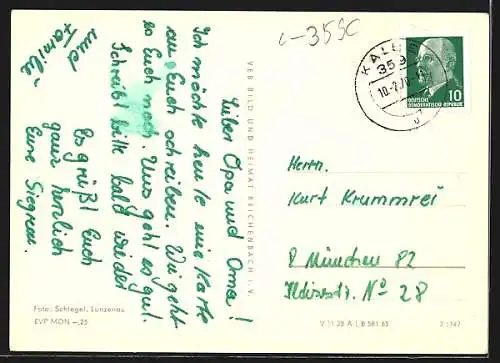 Lieber Opa und Oma!
Ich möchte heute eine Karte
an Euch schreiben. Wie geht
es Euch noch. Uns geht es gut.
Schreibt bitte bald wieder
Es grüßt Euch
ganz herzlich
Eure
und
Familie
c-355C
KAL
359
10
DEUTSCHE
DEMOKRATISCHE REPUBLIK
VEB BILD UND HEIMAT REICHENBACH I. V.
Herrn.
Kurt Krummrei
8 München 82
Nº 28
Foto: Schlegel, Lunzenau
EVP MDN –,25
V 11 28 A 1 B 581 65
2/1747